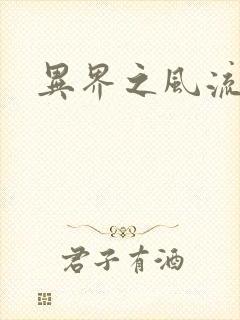 異界之風流
君子有酒